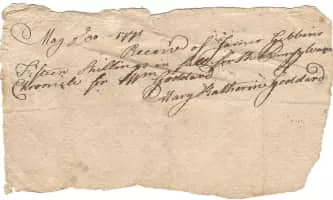 May 30 1771
Receivd of James Gibbins
Fifteen Shillings in full for the Pennsylvania
Chronicle for Wm Goddard
Mary Katherine Goddard